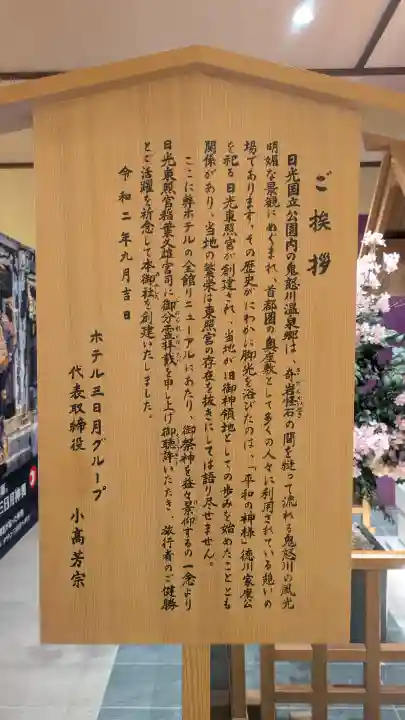 ご挨拶
日光国立公園内の鬼怒川温泉郷は、奇岩怪石の間を縫って流れる鬼怒川の風光
明媚な景観にめぐまれ、首都圏の奥座敷として多くの人々に利用されている憩いの
場であります。その歴史がにわかに脚光を浴びたのは、「平和の神様」徳川家康公
を祀る日光東照宮が創建され、当地が旧御神領地としての歩みを始めたこととも
関係があり、当地の繁栄は東照宮の存在を抜きにしては語り尽せません。
ここに弊ホテルの全館リニューアルにあたり、御祭神を益々景仰するの一念より
日光東照宮稲葉久雄宮司に御分霊拝戴を申し上げ御聴許いただき、旅行者のご健勝
とご活躍を祈念して本御社を創建いたしました。
令和二年九月吉日
ホテル三日月グループ
代表取締役 小高芳宗